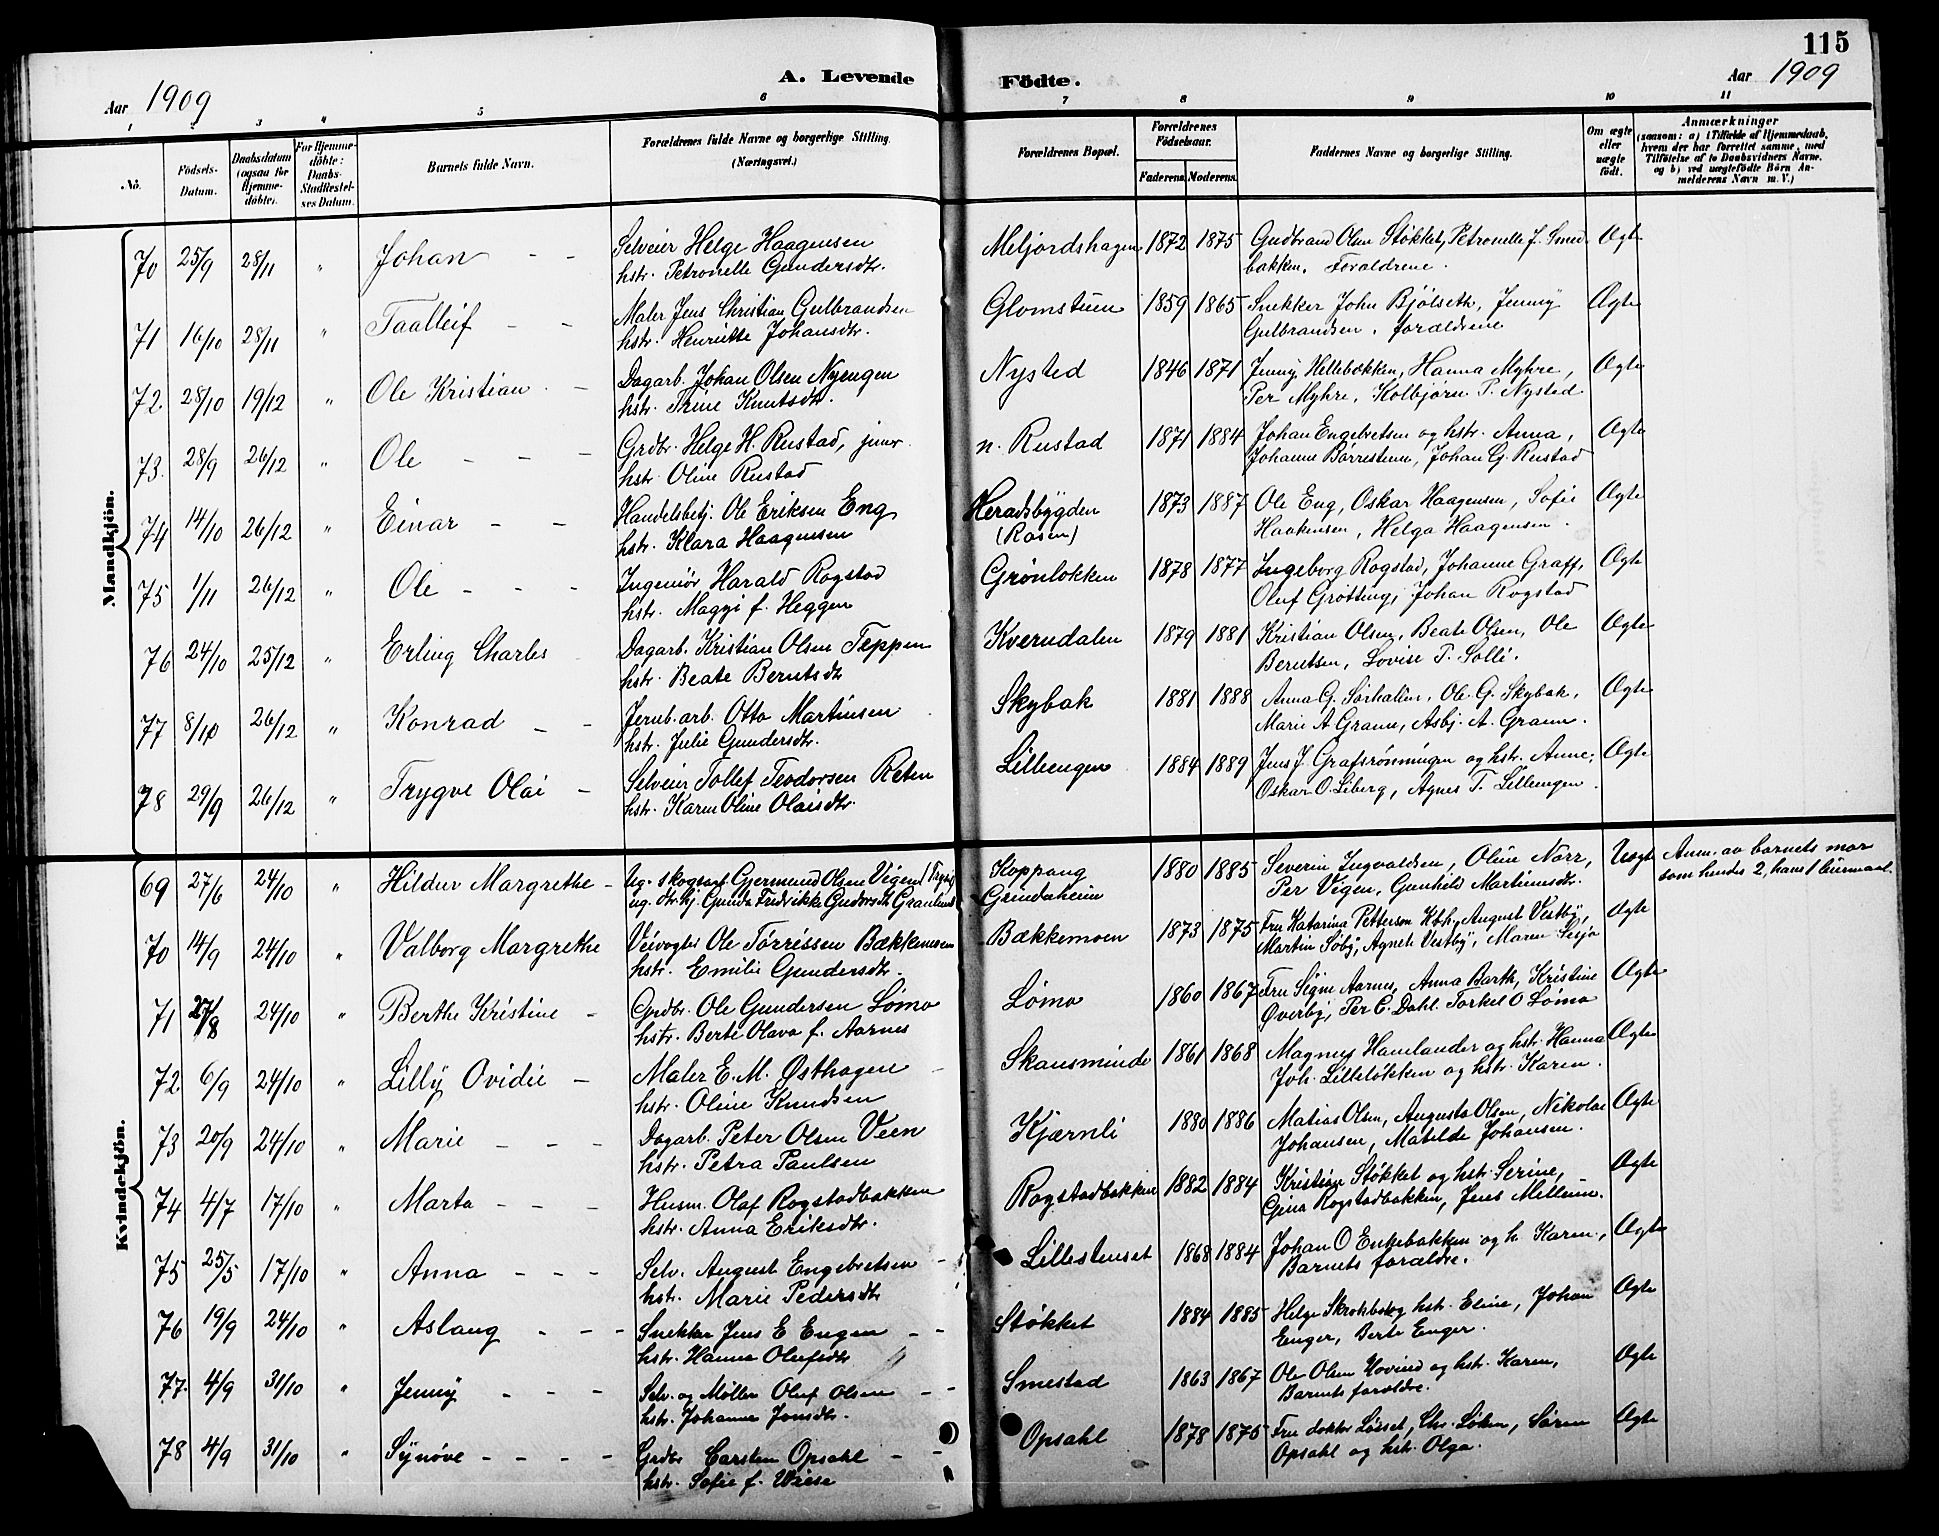 115
Aar 1909 A. Levende Födte. Aar 1909
1 2 3 4 5 6 7 8 9 10 11
No. Födsels-Datum. Daabsdatum (ogsaa for Hjemme-döbte). For Hjemme-döbte: Daabs-Stadfæstel-ses Datum. Barnets fulde Navn. Forældrenes fulde Navne og borgerlige Stilling. (Næringsvei.) Forældrenes Bopæl. Forældrenes Födselsaar. Faderens. Moderens. Faddernes Navne og borgerlige Stilling. Om ægte eller uægte födt. Anmærkninger
(saasom: a) i Tilfælde af Hjemmedaab,
hvem der har forrettet samme, med
Tilföielse af to Daabsvidners Navne.
og b) ved uægtefödte Börn An-
melderens Navn m. V.)
Mandkjön.
70 25/9 28/11 " Johan - - Selveier Helge Haagensen Meljordshagen 1872 1875 Gudbrand Olsen Støkket, Petronelle f. Smed- Ægte
hstr. Petronelle Gundersdtr. bakken. Forældrene.
71 16/10 28/11 " Taalleif - - Maler Jens Christian Gulbrandsen Glomstuen 1859 1865 Snekker John Bjølseth, Jenny Ægte
hstr. Henriette Johansdtr. Gulbrandsen, forældrene
72 28/10 19/12 " Ole Kristian - Dagarb. Johan Olsen Nyengen Nysted 1846 1871 Jenny Hellebakken, Hanna Myhre, Ægte
hstr. Trine Knutsdtr. Per Myhre, Kolbjørn P. Nysted
73 28/9 26/12 " Ole - - - Grdbr. Helge H. Rustad, junr. n. Rustad 1871 1884 Johan Engebretsen og hstr. Anna, Ægte
hstr. Oline Rustad Johanne Børrestuen, Johan G. Rustad
74 14/10 26/12 " Einar - - Handelsbetj. Ole Eriksen Eng Heradsbygden 1873 1887 Ole Eng, Oskar Haagensen, Sofie Ægte
hstr. Klara Haagensen (Rosen) Haakensen, Helga Haagensen.
75 1/11 26/12 " Ole - - - Ingeniør Harald Rogstad Grønlokken 1878 1877 Ingeborg Rogstad, Johanne Graff, Ægte
hstr. Maggi f. Heggen Oluf Grøtting, Johan Rogstad
76 24/10 25/12 " Erling Charles Dagarb. Kristian Olsen Teppen Kverndalen 1879 1881 Kristian Olsen, Beate Olsen, Ole Ægte
hstr. Beate Berntsdtr Berntsen, Lovise T. Solli.
77 8/10 26/12 " Konrad - - Jernb. arb. Otto Martinsen Skybak 1881 1888 Anna G. Sørhalin, Ole G. Skybak, Ægte
hstr. Julie Gundersdtr. Marie A Graan, Asbj. A. Graan.
78 29/9 26/12 " Trygve Olai - Selveier Tollef Teodorsen Reten Lillengen 1884 1889 Jens J. Grafsrønningen og hstr. Anne, Ægte
hstr. Karen Oline Olaisdtr. Oskar O. Liberg, Agnes T. Lillengen.
Kvindekjön.
69 27/6 24/10 " Hildur Margrethe - Ug. skogsarb Gjermund Olsen Vigen (Trysil) Koppang 1880 1885 Severin Ingvaldsen, Oline Norr, Uægte Anm. av barnets mor
ug. Gunda Fredrikke Gudersdtr Granlund Grundeheim Per Vigen, Gunhild Martinsdtr. som hendes 2, hans 1 leiermaal.
70 14/9 24/10 " Valborg Margrethe Veivogter Ole Tørrissen Bækkemoen Bækkemoen 1873 1875 Fru Katarina Petterson Kbh, August Vestby, Ægte
hstr. Emilie Gundersdtr. Martin Søby, Agnete Vestby, Maren Sesja
71 27/8 24/10 " Berthe Kristine - Grdbr. Ole Gundersen Lømo Lømo 1860 1867 Fru Signe Aarnes, Anna Barth, Kristine Ægte
hstr. Berte Olava f. Aarnes Øverby, Per C. Dahl. Torkel O Lømo
72 6/9 24/10 " Lilly Ovidie - Maler E. M. Østhagen Skansminde 1861 1868 Magnus Hamlander og hstr. Hanna Ægte
hstr. Oline Knudsen Joh. Lilleløkken og hstr. Karen.
73 20/9 24/10 " Marie - - - Dagarb. Peter Olsen Veen Kjærnli 1880 1886 Matias Olsen, Augusta Olsen, Nikolai Ægte
hstr. Petra Paulsen Johansen, Matilde Johansen.
74 4/7 17/10 " Marta - - - Husm. Olaf Rogstadbakken Rogstadbakken 1882 1884 Kristian Støkket og hstr. Serine, Ægte
hstr. Anna Eriksdtr. Gina Rogstadbakken, Jens Mellum.
75 25/5 17/10 " Anna - - - Selv. August Engebretsen Lillestenset 1868 1884 Johan O Enkebakken og h. Karen, Ægte
hstr. Marie Pedersdtr Barnets forældre.
76 19/9 24/10 " Aslaug - - - Snekker Jens E Engen Støkket 1884 1885 Helge Skrokbæk og hstr. Eline, Johan Ægte
hstr. Hanna Olufsdtr Enger, Berte Enger.
77 4/9 31/10 " Jenny - - - Selv. og Møller Oluf Olsen Smestad 1863 1867 Ole Olsen Hovind og hstr. Karen, Ægte
hstr. Johanne Jonsdtr. Barnets forældre.
78 4/9 31/10 " Synøve - - - - Grdbr Carsten Opsahl Opsahl 1878 1875 Fru doktor Løsset, Chr. Løken, Søren Ægte
hstr. Sofie f. Wiese Opsahl og hstr. Olga.